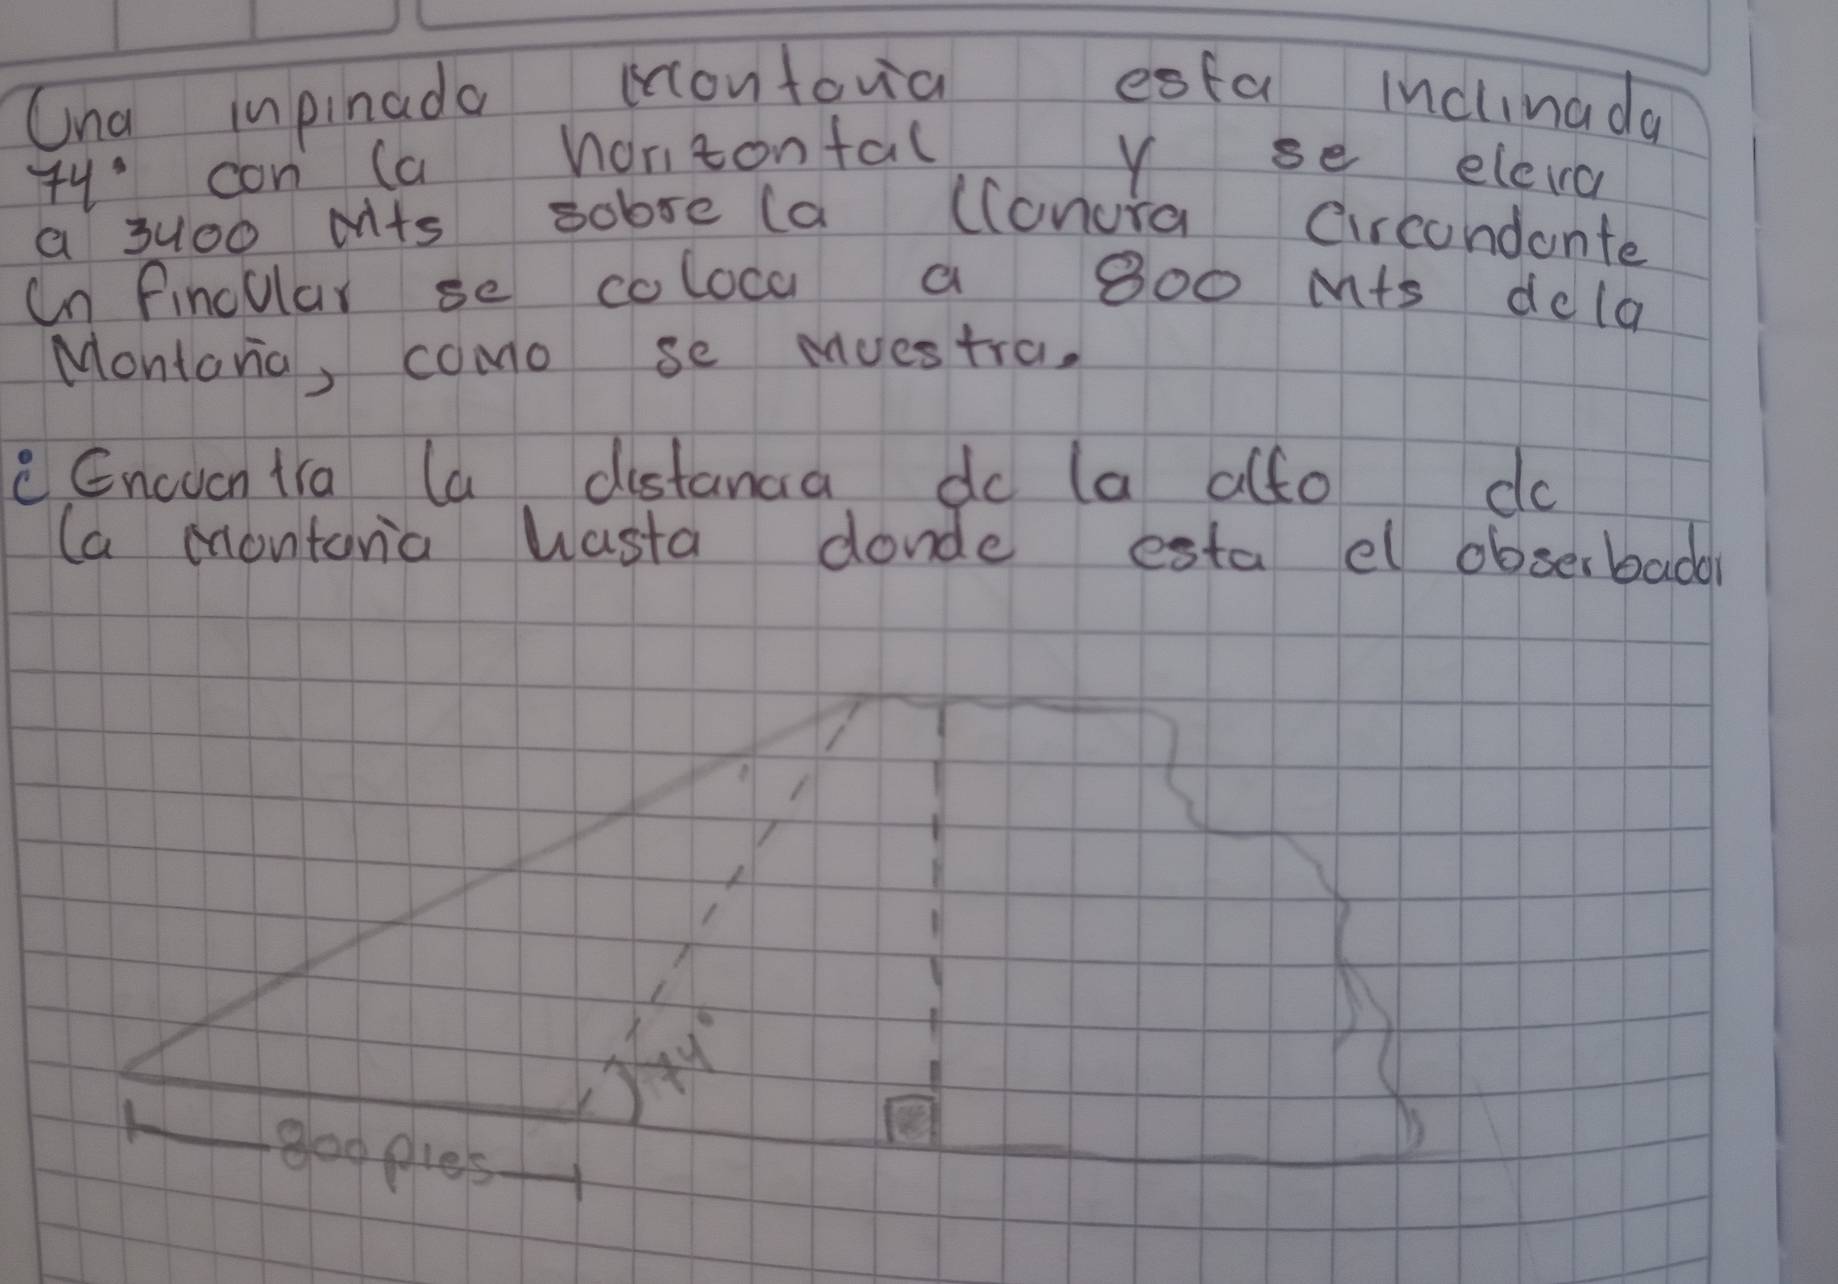 Una inpinada montaña esta inclinada
74° con la horizontal y se eleva
a 3400 Mts sobre la llanura circundante
Un fincular se coloca a 800 Mts dela
Montaña, como se muestra.
¿ Encuentra la distancia de la alto de
la montaña hasta donde esta el obserbador
74°
800 pies